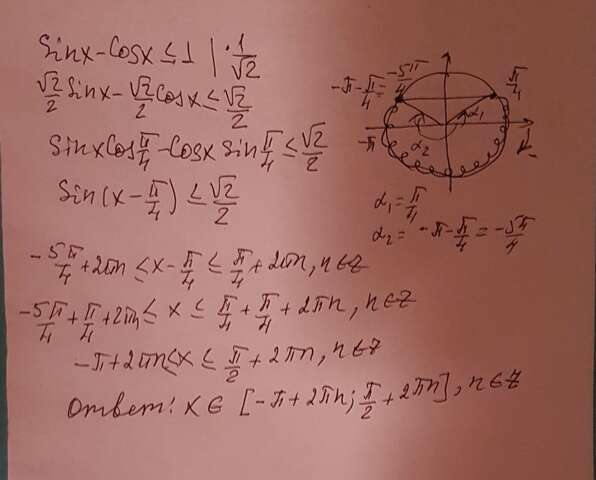 Sinx-Cosx≤1 | ·1/√2
√2/2 Sinx-√2/2 Cosx≤√2/2
SinxCosπ/4-CosxSinπ/4≤√2/2
Sin(x-π/4)≤√2/2
-π-π/4=-5π/4
π/4
α₁
α₂
-π
α₁=π/4
α₂=-π-π/4=-5π/4
-5π/4+2πn≤x-π/4≤π/4+2πn,n∈Z
-5π/4+π/4+2πn≤x≤π/4+π/4+2πn,n∈Z
-π+2πn≤x≤π/2+2πn,n∈Z
Ответ: x∈[-π+2πn;π/2+2πn],n∈Z